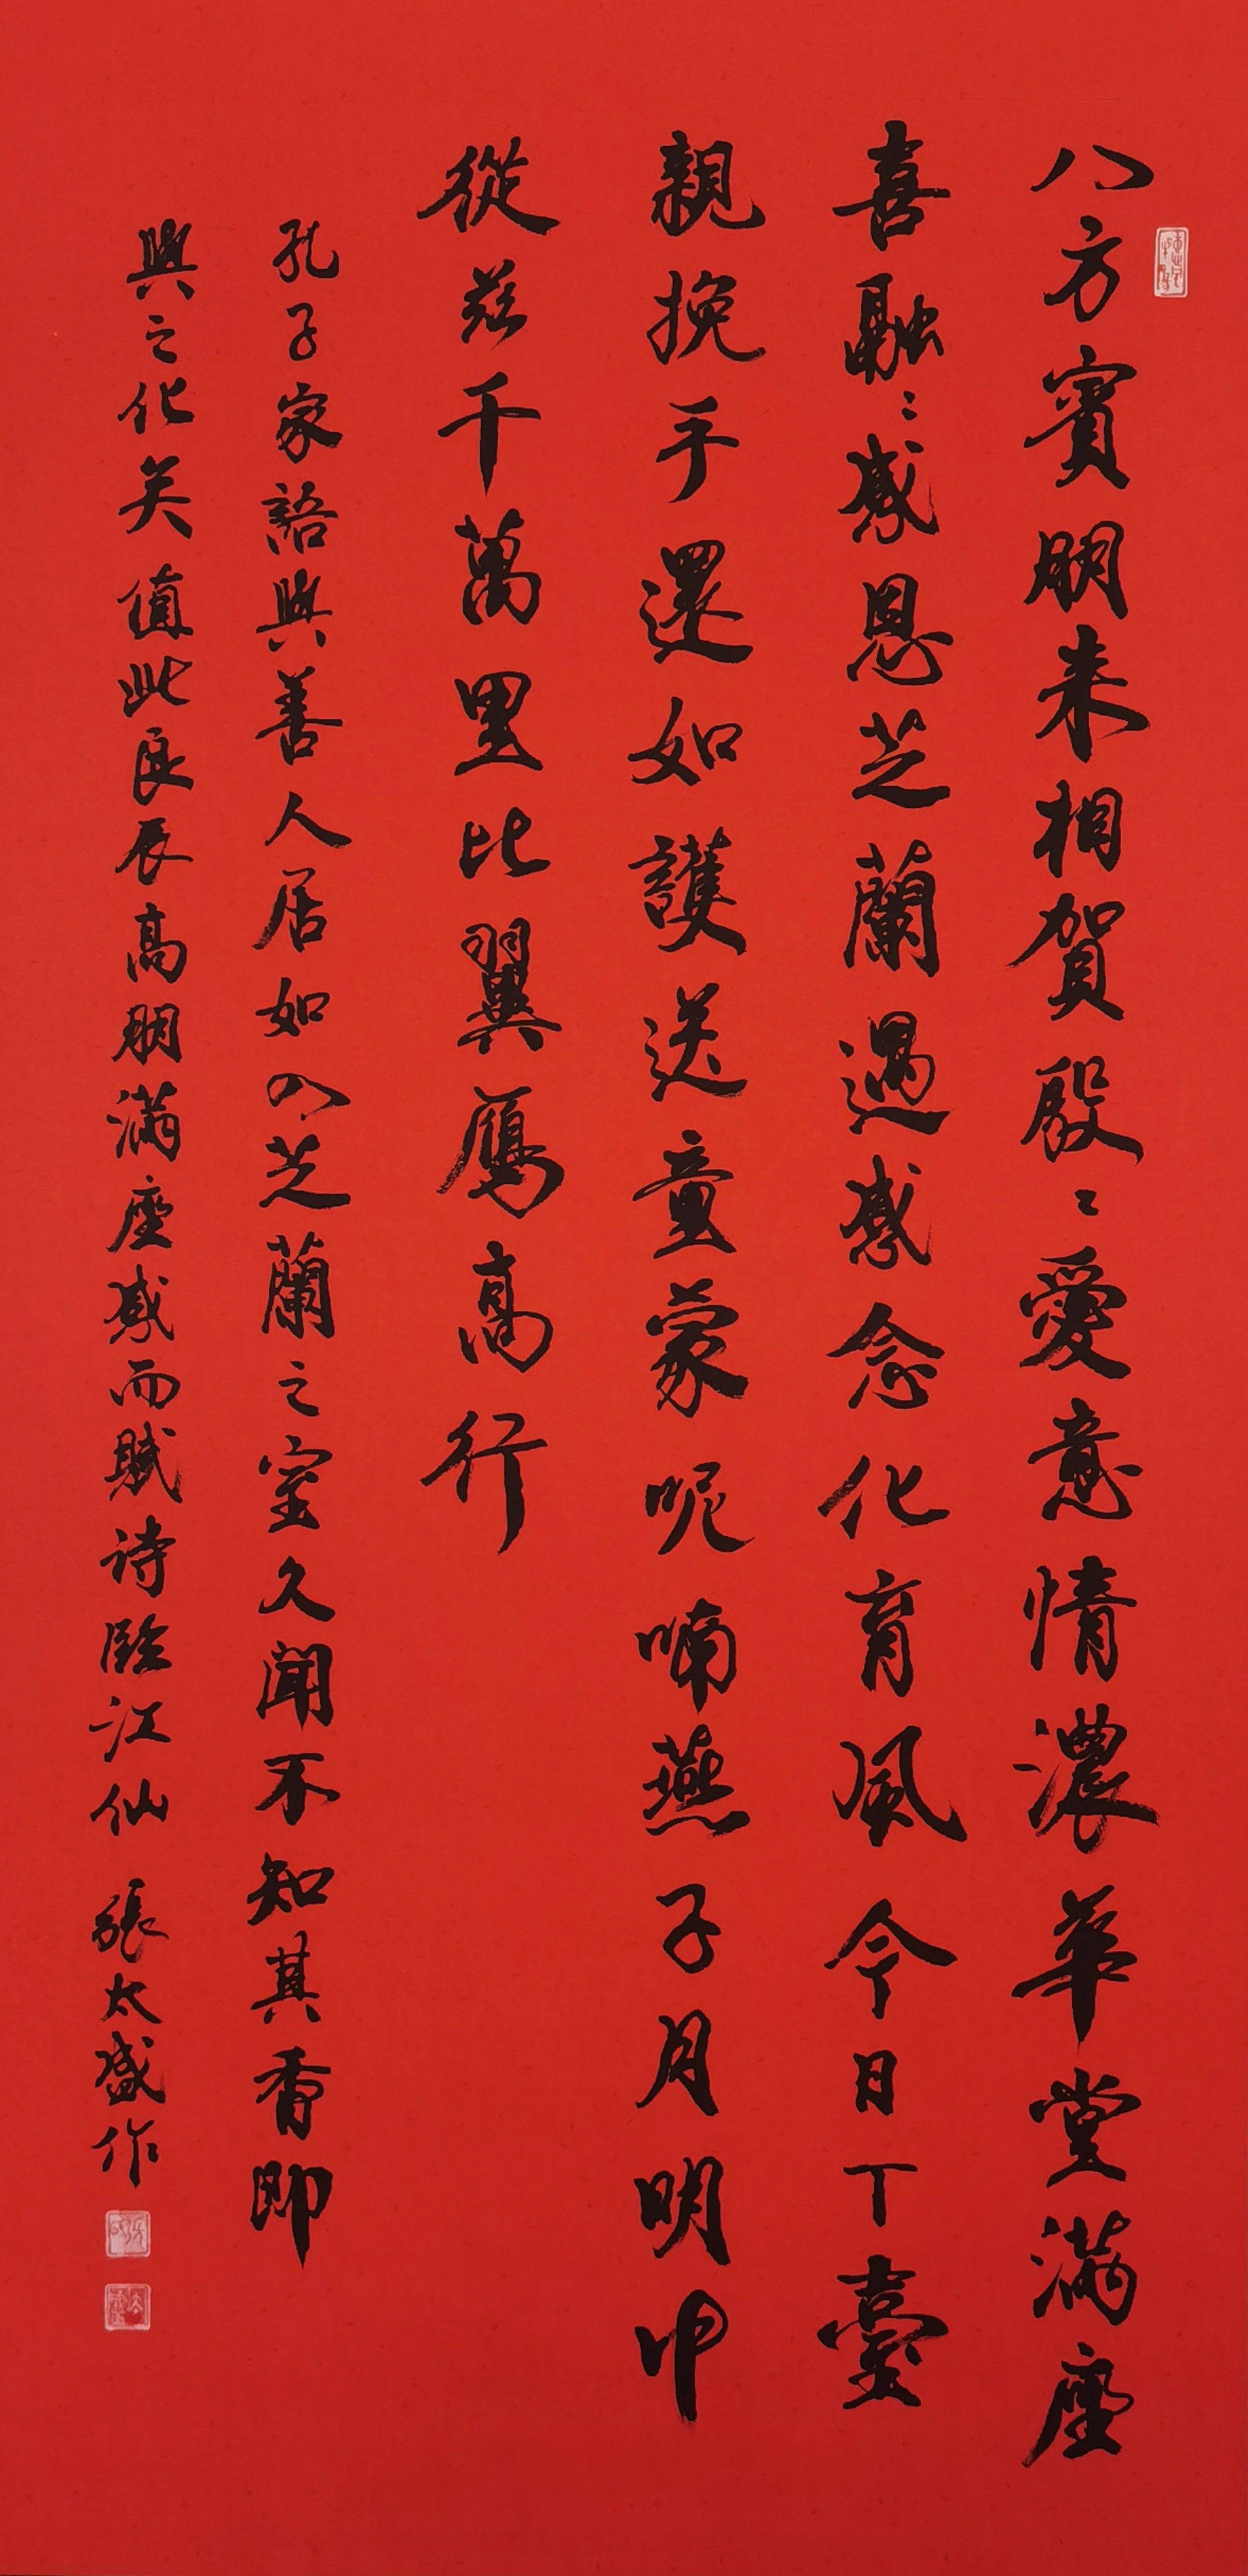 八方賓朋来相賀殷〻愛意情濃華堂滿座
喜融〻感恩芝蘭遇感念化育風今日丁臺
親挽手還如護送童蒙呢喃燕子月明中
從茲千萬里比翼鴈高行
孔子家語與善人居如入芝蘭之室久聞不知其香即
與之化矣值此良辰高朋滿座感而賦诗臨江仙 張太盛作